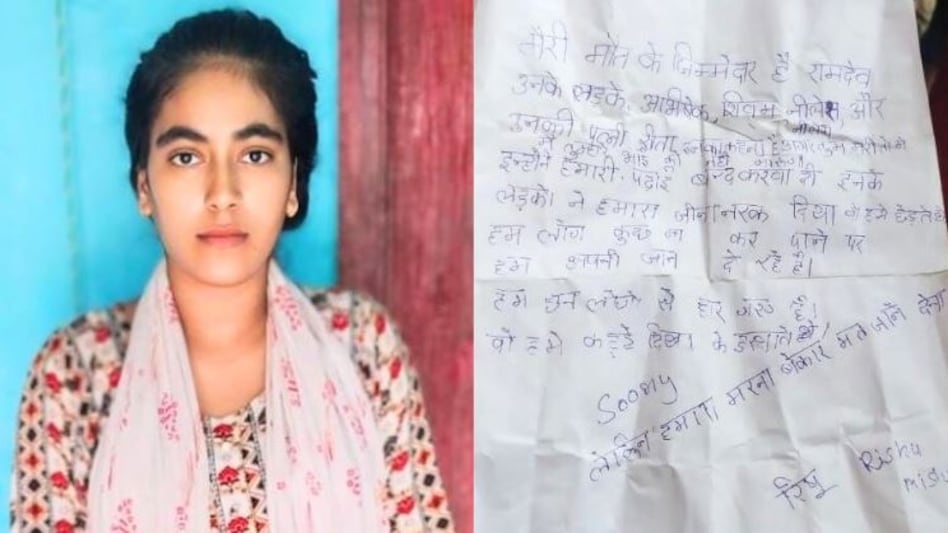 मौरी मौत के जिम्मेदार है रामदेव
उनके लड़के, अभिषेक, शिवम, नीलेश, और
उनकी पत्नी शीला
इन्होने हमारी पढ़ाई बन्द करवा दी इनके
लड़को ने हमारा जीना नरक दिया
हम लोग कुछ ना कर पाने पर
हम अपनी जान दे रहे है।
हम इन लोगो से हार गए है।
वो हमे कट्टे दिखा के
Soory
लेकिन हमारा मरना बेकार मत जाने देना
रिषु Rishu
mish